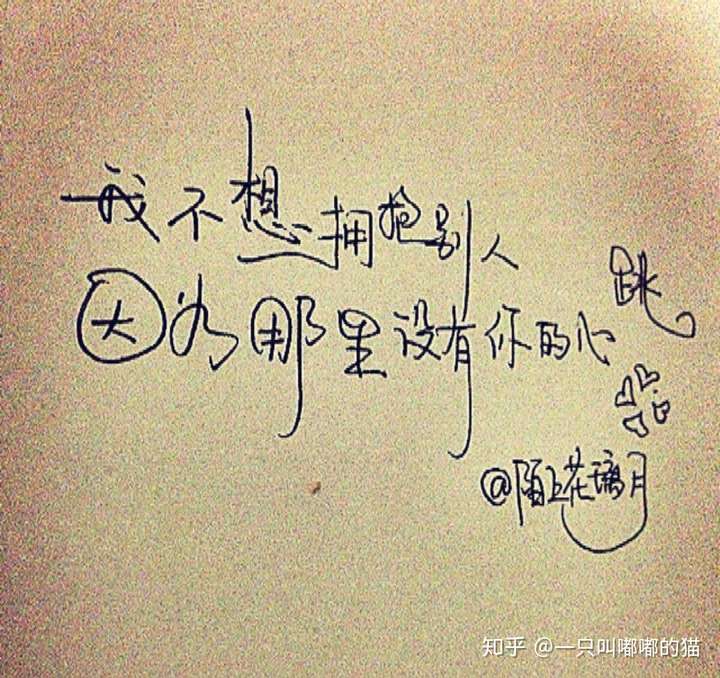 我不想拥抱别人
因为那里没有你的心跳
@陌上花璃月
知乎 @一只叫嘟嘟的猫